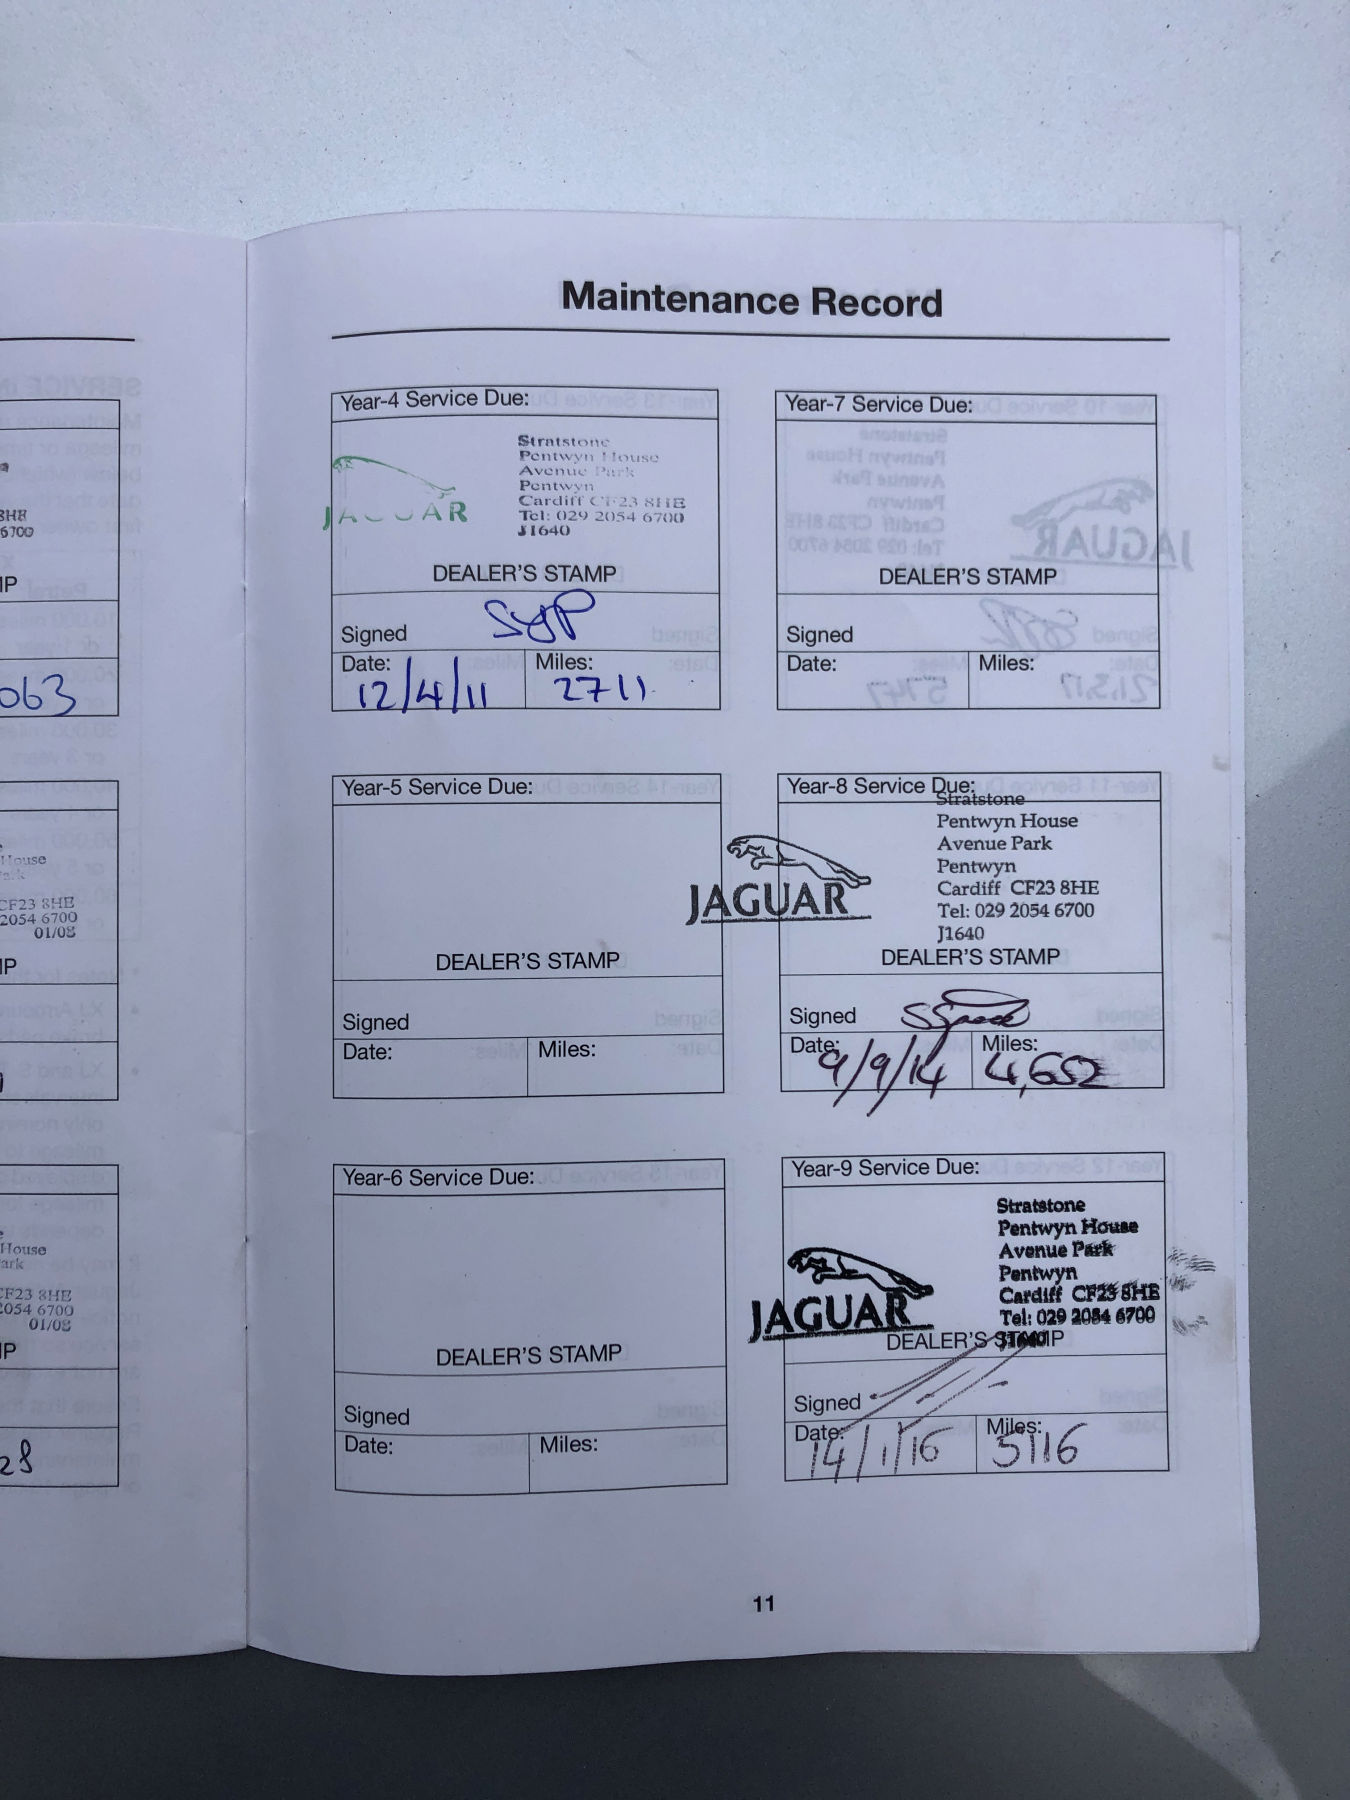 Maintenance Record
8H8
6700
MP
063
House
Park
CF23 8HE
2054 6700
01/08
MP
House
ark
CF23 8HE
2054 6700
01/08
MP
28
Year-4 Service Due:
JAGUAR
Stratstone
Pentwyn House
Avenue Park
Pentwyn
Cardiff CF23 8HE
Tel: 029 2054 6700
J1640
DEALER'S STAMP
Signed
Date: 12/4/11
Miles: 2711
Year-5 Service Due:
DEALER'S STAMP
Signed
Date:
Miles:
Year-6 Service Due:
DEALER'S STAMP
Signed
Date:
Miles:
Year-7 Service Due:
DEALER'S STAMP
Signed
Date:
Miles:
Year-8 Service Due:
JAGUAR
Stratstone
Pentwyn House
Avenue Park
Pentwyn
Cardiff CF23 8HE
Tel: 029 2054 6700
J1640
DEALER'S STAMP
Signed
Date: 9/9/14
Miles: 4,652
Year-9 Service Due:
JAGUAR
Stratstone
Pentwyn House
Avenue Park
Pentwyn
Cardiff CF23 8HE
Tel: 029 2054 6700
J1640
DEALER'S STAMP
Signed
Date: 14/1/16
Miles: 5116
11